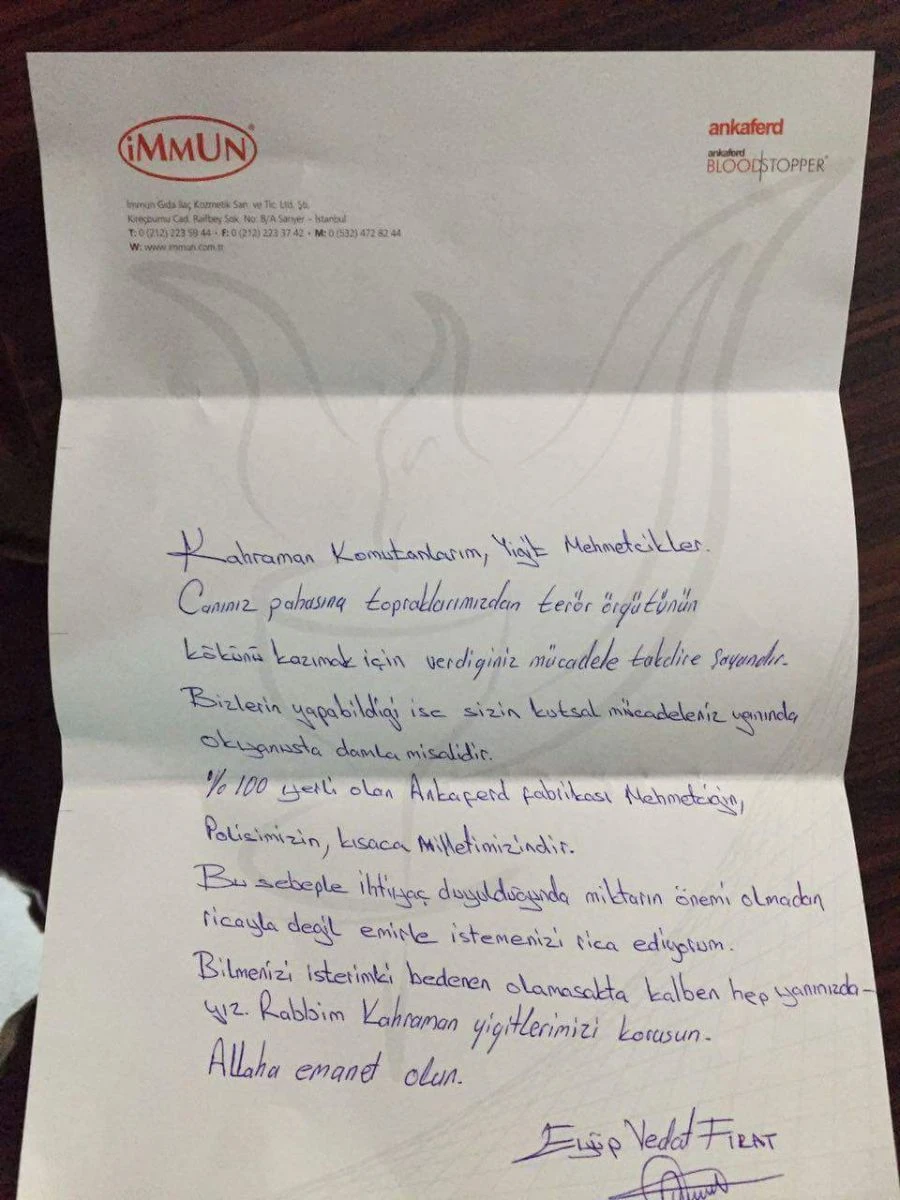 iMMUN®
ankaferd
ankaferd
BLOODSTOPPER®
İmmun Gıda İlaç Kozmetik San. ve Tic. Ltd. Şti.
Kireçburnu Cad. Raifbey Sok. No: 8/A Sarıyer - İstanbul
T: 0 (212) 223 59 44 • F: 0 (212) 223 37 42 • M: 0 (532) 472 82 44
W: www.immun.com.tr
Kahraman Komutanlarım, Yiğit Mehmetcikler.
Canınız pahasına topraklarımızdan terör örgütünün
kökünü kazımak için verdiginiz mücadele takdire şayandır.
Bizlerin yapabildiği ise sizin kutsal mücadeleniz yanında
okyanusta damla misalidir.
%100 yerli olan Ankaferd fabrikası Mehmetciğin,
Polisimizin, kısaca Milletimizindir.
Bu sebeple ihtiyaç duyulduğunda miktarın önemi olmadan
ricayla değil emirle istemenizi rica ediyorum.
Bilmenizi isterimki bedenen olamasakta kalben hep yanınızda-
yız. Rabbim Kahraman yigitlerimizi korusun.
Allaha emanet olun.
Eyüp Vedat FIRAT